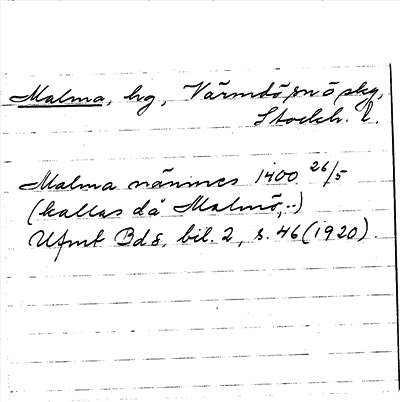 Malma, hg, Värmdö skg,
Stockh. l.
Malma nämnes 1400 26/5
(kallas då Malmö,..)
Ufmt Bd 8, bil. 2, s. 46 (1920).